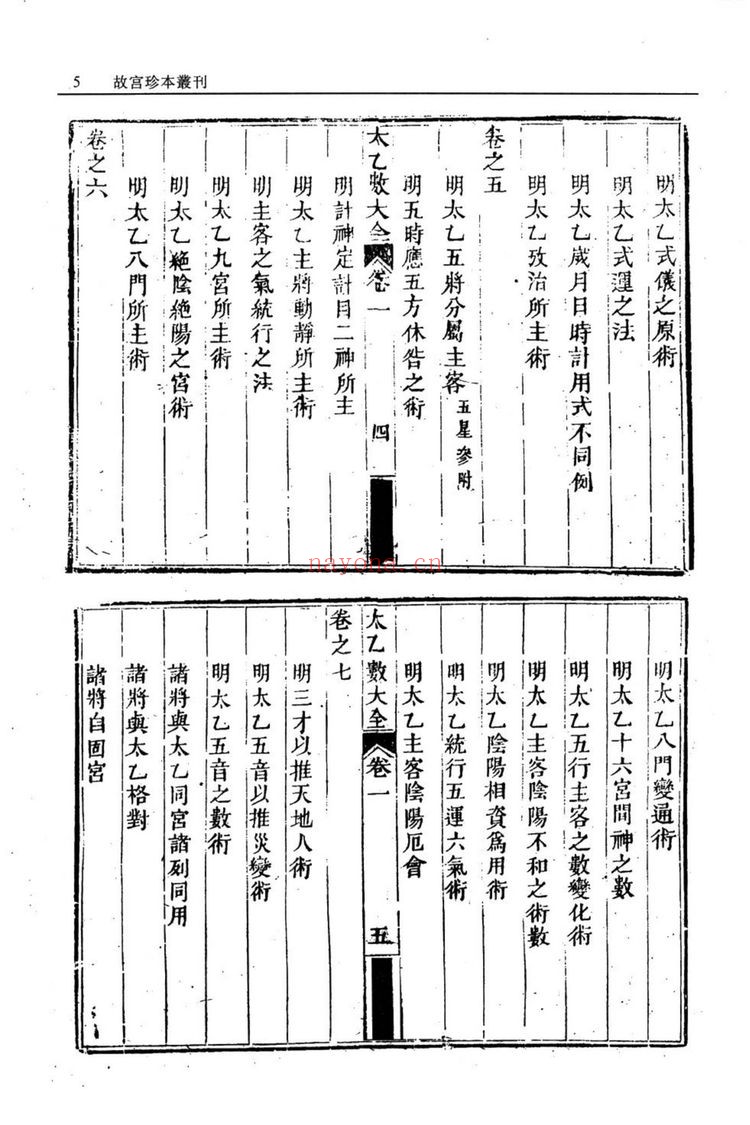 5 故宮珍本叢刊
明太乙式儀之原術
明太乙式運之法
明太乙歲月日時計用式不同例
明太乙攷治所主術
卷之五
明太乙五將分屬主客 五星參附
明五時應五方休咎之術
太乙數大全 卷一 四
明計神定計目二神所主
明太乙主將動靜所主術
明主客之氣統行之法
明太乙九宮所主術
明太乙絕陰絕陽之宮術
明太乙八門所主術
卷之六
明太乙八門變通術
明太乙十六宮間神之數
明太乙五行主客之數變化術
明太乙主客陰陽不和之術數
明太乙陰陽相資為用術
明太乙統行五運六氣術
明太乙主客陰陽厄會
太乙數大全 卷一 五
卷之七
明三才以推天地人術
明太乙五音以推災變術
明太乙五音之數術
諸將與太乙同宮諸列同用
諸將與太乙格對
諸將自囚宮
nayona.cn